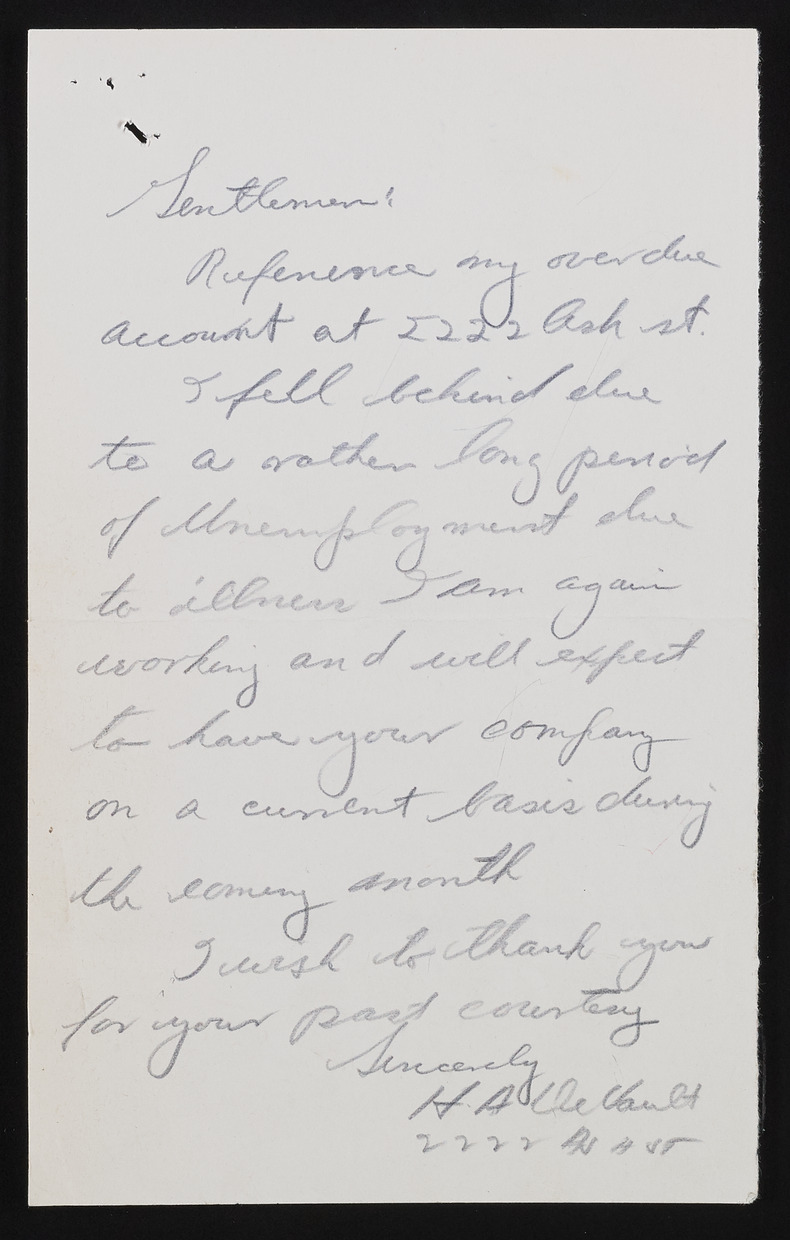 Gentlemen:
Reference my overdue
account at 2222 Ash st.
I fell behind due
to a rather long period
of Unemployment due
to illness I am again
working and will expect
to have your company
on a current basis during
the coming month
I wish to thank you
for your past courtesy
Sincerely
H A DeVault
2222 Ash ST